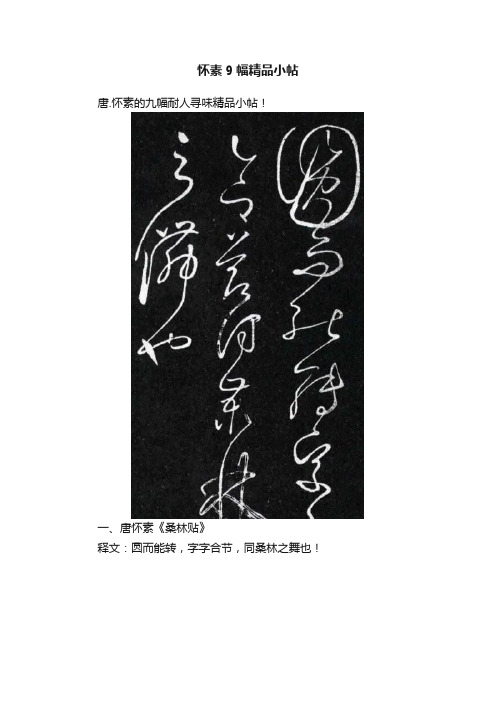 怀素9幅精品小帖
唐.怀素的九幅耐人寻味精品小帖！
圓而能轉字
同桑林
之舞也
一、唐怀素《桑林贴》
释文：圆而能转，字字合节，同桑林之舞也！